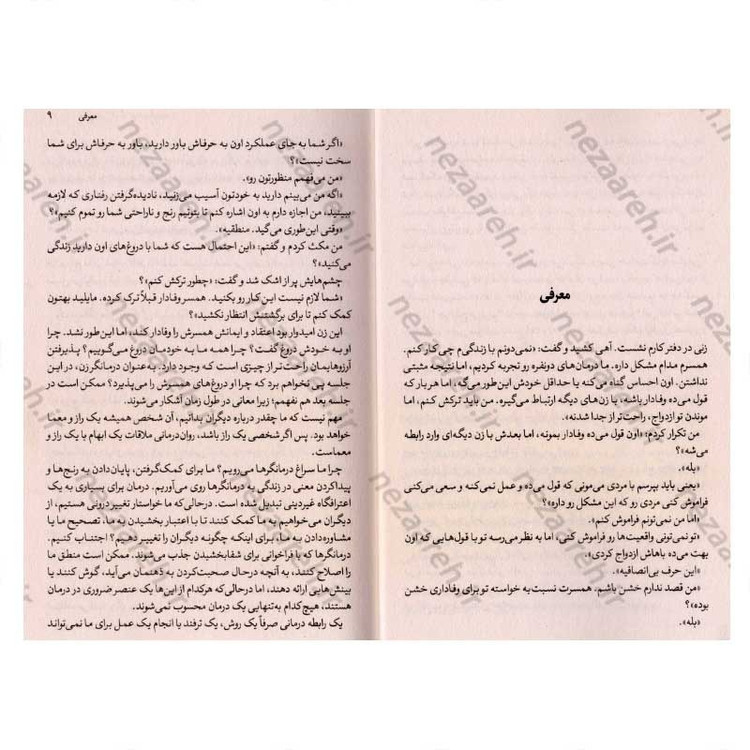 معرفی
زنی در دفتر کارم نشست. آهی کشید و گفت: «نمی‌دونم با زندگی‌م چی کار کنم.
همسرم مدام مشکل داره. ما درمان‌های دونفره رو تجربه کردیم، اما نتیجه مثبتی
نداشتن. اون احساس گناه می‌کنه یا حداقل خودش این‌طور می‌گه، اما هر بار که
قول می‌ده وفادار باشه، با زن‌های دیگه ارتباط می‌گیره. من باید ترکش کنم، اما
موندن تو ازدواج، راحت‌تر از جدا شدنه».
من تکرار کردم: «اون قول می‌ده وفادار بمونه، اما بعدش با زن دیگه‌ای وارد رابطه
می‌شه»؟
«بله».
«یعنی باید بپرسم با مردی می‌مونی که قول می‌ده و عمل نمی‌کنه و سعی می‌کنی
فراموش کنی مردی رو که این مشکل رو داره»؟
«اما من نمی‌تونم فراموش کنم».
«تو نمی‌تونی واقعیت‌ها رو فراموش کنی، اما به نظر می‌رسه تو با قول‌هایی که اون
بهت می‌ده باهاش ازدواج کردی».
«این حرف بی‌انصافیه».
«من قصد ندارم خشن باشم، همسرت نسبت به خواسته تو برای وفاداری خشن
بوده»؟
«بله».
معرفی ۹
«اگر شما به جای عملکرد اون به حرفاش باور دارید، باور به حرفاش برای شما
سخت نیست»؟
«من می‌فهمم منظورتون رو».
«اگه من می‌بینم دارید به خودتون آسیب می‌زنید، نادیده‌گرفتن رفتاری که لازمه
ببینید، من اجازه دارم به اون اشاره کنم تا بتونیم رنج و ناراحتی شما رو تموم کنیم»؟
«وقتی این‌طوری می‌گید. منطقیه».
من مکث کردم و گفتم: «این احتمال هست که شما با دروغ‌های اون دارید زندگی
می‌کنید»؟
چشم‌هایش پر از اشک شد و گفت: «چطور ترکش کنم»؟
«شما لازم نیست این کار رو بکنید. همسر وفادار قبلاً ترک کرده. مایلید بهتون
کمک کنم تا برای برگشتنش انتظار نکشید»؟
این زن امیدوار بود اعتقاد و ایمانش همسرش را وفادار کند، اما این‌طور نشد. چرا
او به خودش دروغ گفت؟ چرا همه ما به خودمان دروغ می‌گوییم؟ پذیرفتن
آرزوهایمان راحت‌تر از چیزی است که وجود دارد. به‌عنوان درمانگر زن، در این
جلسه پی نخواهم برد که چرا او دروغ‌های همسرش را می‌پذیرد؟ ممکن است در
جلسه بعد هم نفهمم؛ زیرا معانی در طول زمان آشکار می‌شوند.
مهم نیست که ما چقدر درباره دیگران بدانیم، آن شخص همیشه یک راز و معما
خواهد بود. پس اگر شخصی یک راز باشد، روان‌درمانی ملاقات یک ابهام با یک راز و
معماست.
چرا ما سراغ درمانگرها می‌رویم؟ ما برای کمک‌گرفتن، پایان‌دادن به رنج‌ها و
پیداکردن معنی در زندگی به درمانگرها روی می‌آوریم. درمان برای بسیاری به یک
اعترافگاه غیردینی تبدیل شده است. درحالی‌که ما خواستار تغییر درونی هستیم، از
دیگران می‌خواهیم به ما کمک کنند تا با اعتبار بخشیدن به ما، تصحیح ما یا
مشاوره‌دادن به ما، برای اینکه چگونه دیگران را تغییر دهیم؟ اجتناب کنیم.
درمانگرها که با فراخوانی برای شفابخشیدن جذب می‌شوند. ممکن است منطق ما
را اصلاح کنند، به آنچه درحال صحبت‌کردن به ذهنمان می‌آید، گوش کنند یا
بینش‌هایی ارائه دهند، اما درحالی‌که هرکدام از این‌ها یک عنصر ضروری در درمان
هستند، هیچ‌کدام به‌تنهایی یک درمان محسوب نمی‌شوند.
یک رابطه درمانی صرفاً یک روش، یک ترفند یا انجام یک عمل برای ما نمی‌تواند
nezaareh.ir